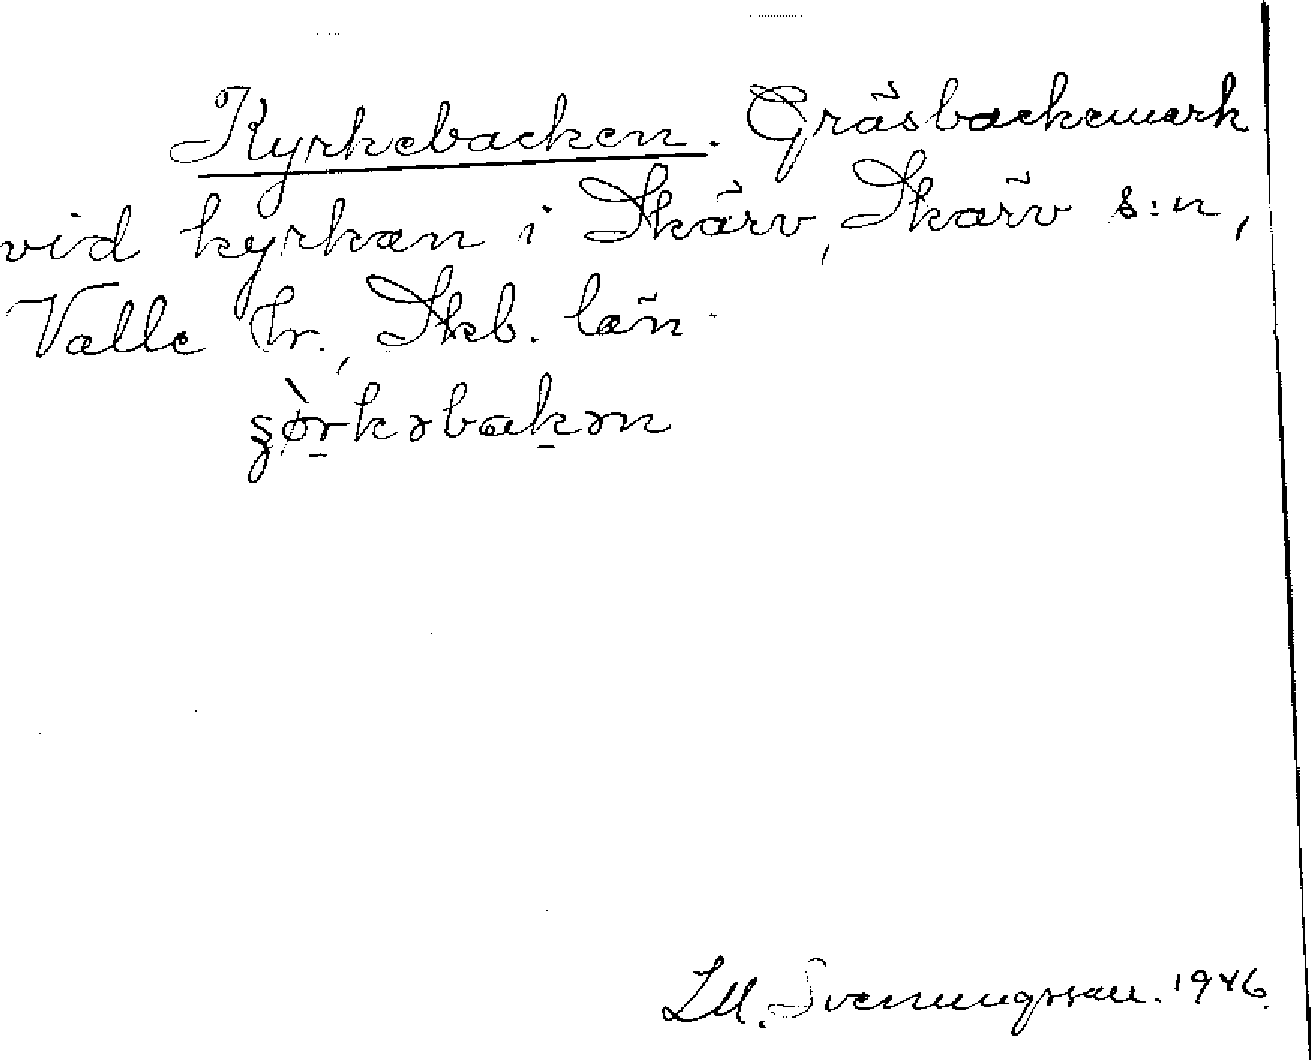 Kyrkebacken. Gräsbackemark
vid kyrkan i Skärv, Skärv s:n,
Valle hr., Skb. län.
Svenungsson. 1946.